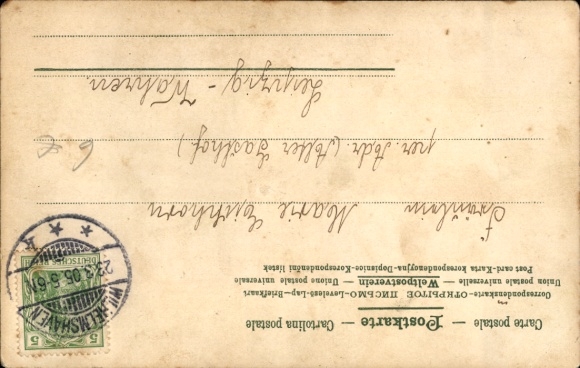 Carte postale — Postkarte — Cartolina postale
Correspondenzkarte—ОТКРЫТОЕ ПИСЬМО—Levelezö-Lap—Briefkaart
Union postale universelle — Weltpostverein — Unione postale universale
Post card-Karta korespondencyjna-Dopisnice-Korespondenční lístek
WILHELMSHAVEN
23.3.05.5-6N
* k *
DEUTSCHES REICH
5 5
Fräulein Marie Eichhorn
per. Adr. (Alter Gasthof.)
Leipzig - Wahren.